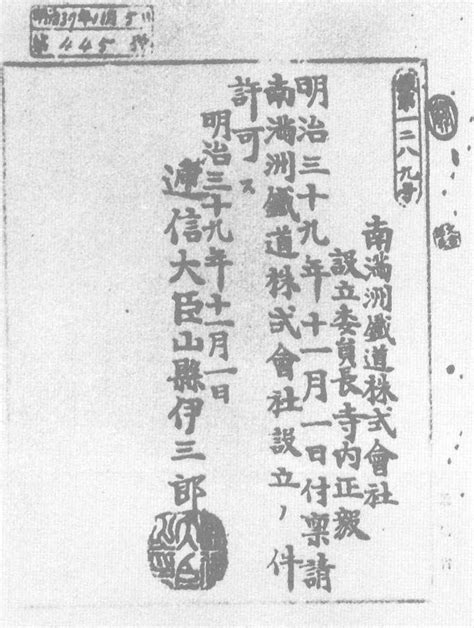 第445
第一二八九号
南滿洲鐵道株式會社
設立委員長寺内正毅
明治三十九年十一月一日付稟請
南滿洲鐵道株式會社設立ノ件
許可ス
明治三十九年十一月一日
遞信大臣山縣伊三郎